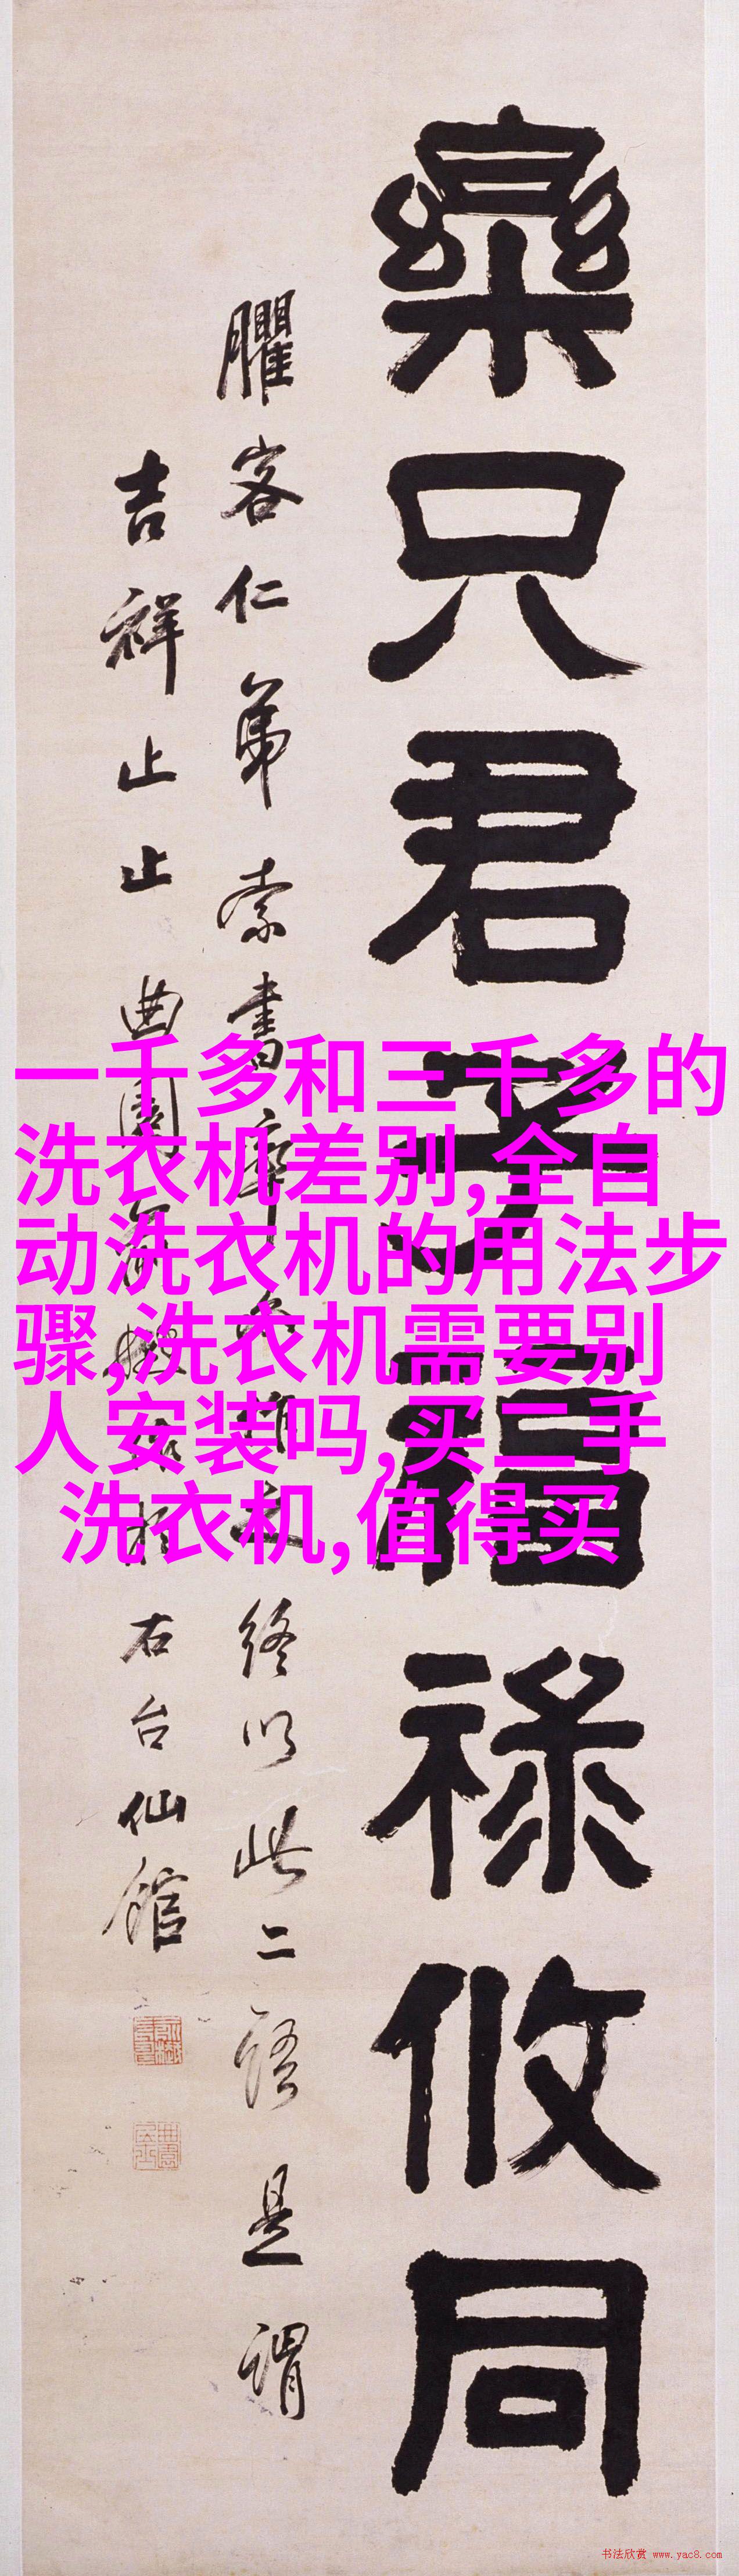 樂只君子福祿攸同
臞客仁弟索書率之終以此二語是謂
吉祥止止曲園俞樾右台仙館
一千多和三千多的
洗衣机差别,全自
动洗衣机的用法步
骤,洗衣机需要别
人安装吗,买二手
洗衣机,值得买
书法欣赏 www.yac8.com